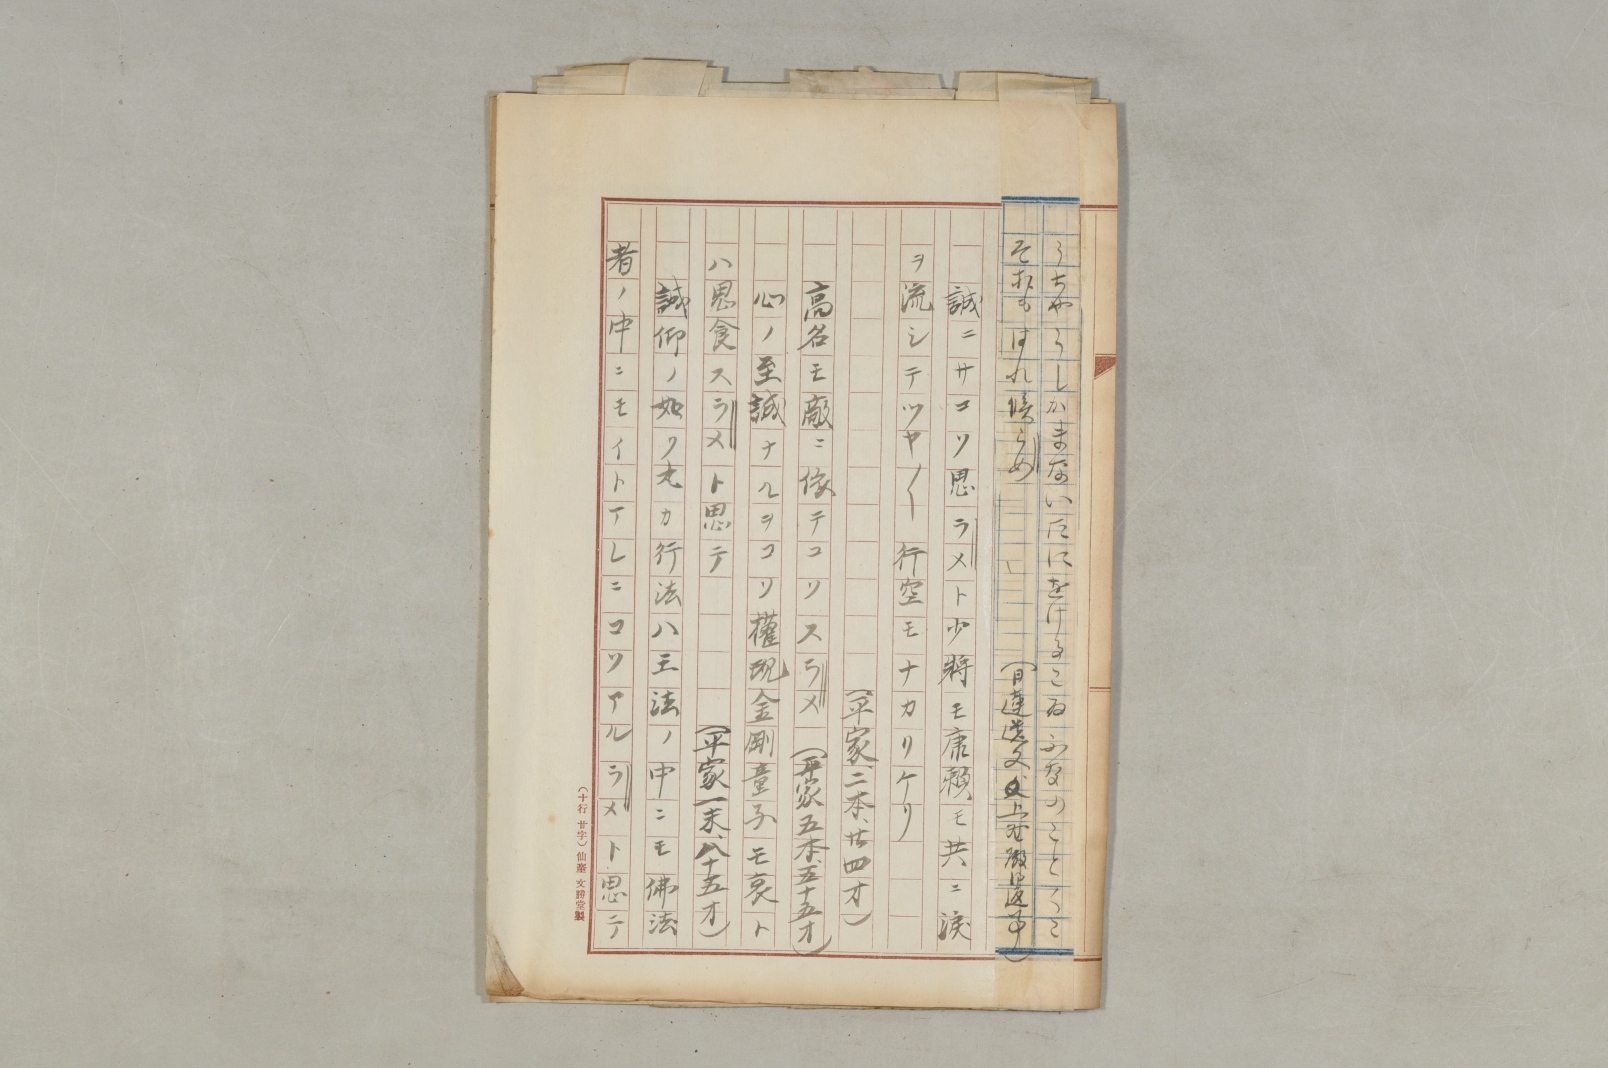 うちやうしかまないたにをけるこゐふなのことくこ
そおもはれ候らめ (日蓮遺文 上野殿御返事)
誠ニサコソ思ラメト少将モ康頼モ共ニ涙
ヲ流シテツヤ〳〵行空モナカリケリ
(平家、二本、廿四オ)
高名モ敵ニ依テコソスラメ (平家五本、五十五オ)
心ノ至誠ナルヲコソ権現金剛童子モ哀ト
ハ思食スラメト思テ (平家一末、八十五オ)
誠仰ノ如ク尤カ行法ハ王法ノ中ニモ佛法
者ノ中ニモイトアレニコソアルラメト思テ
(十行 廿字) 仙臺 文譁堂製